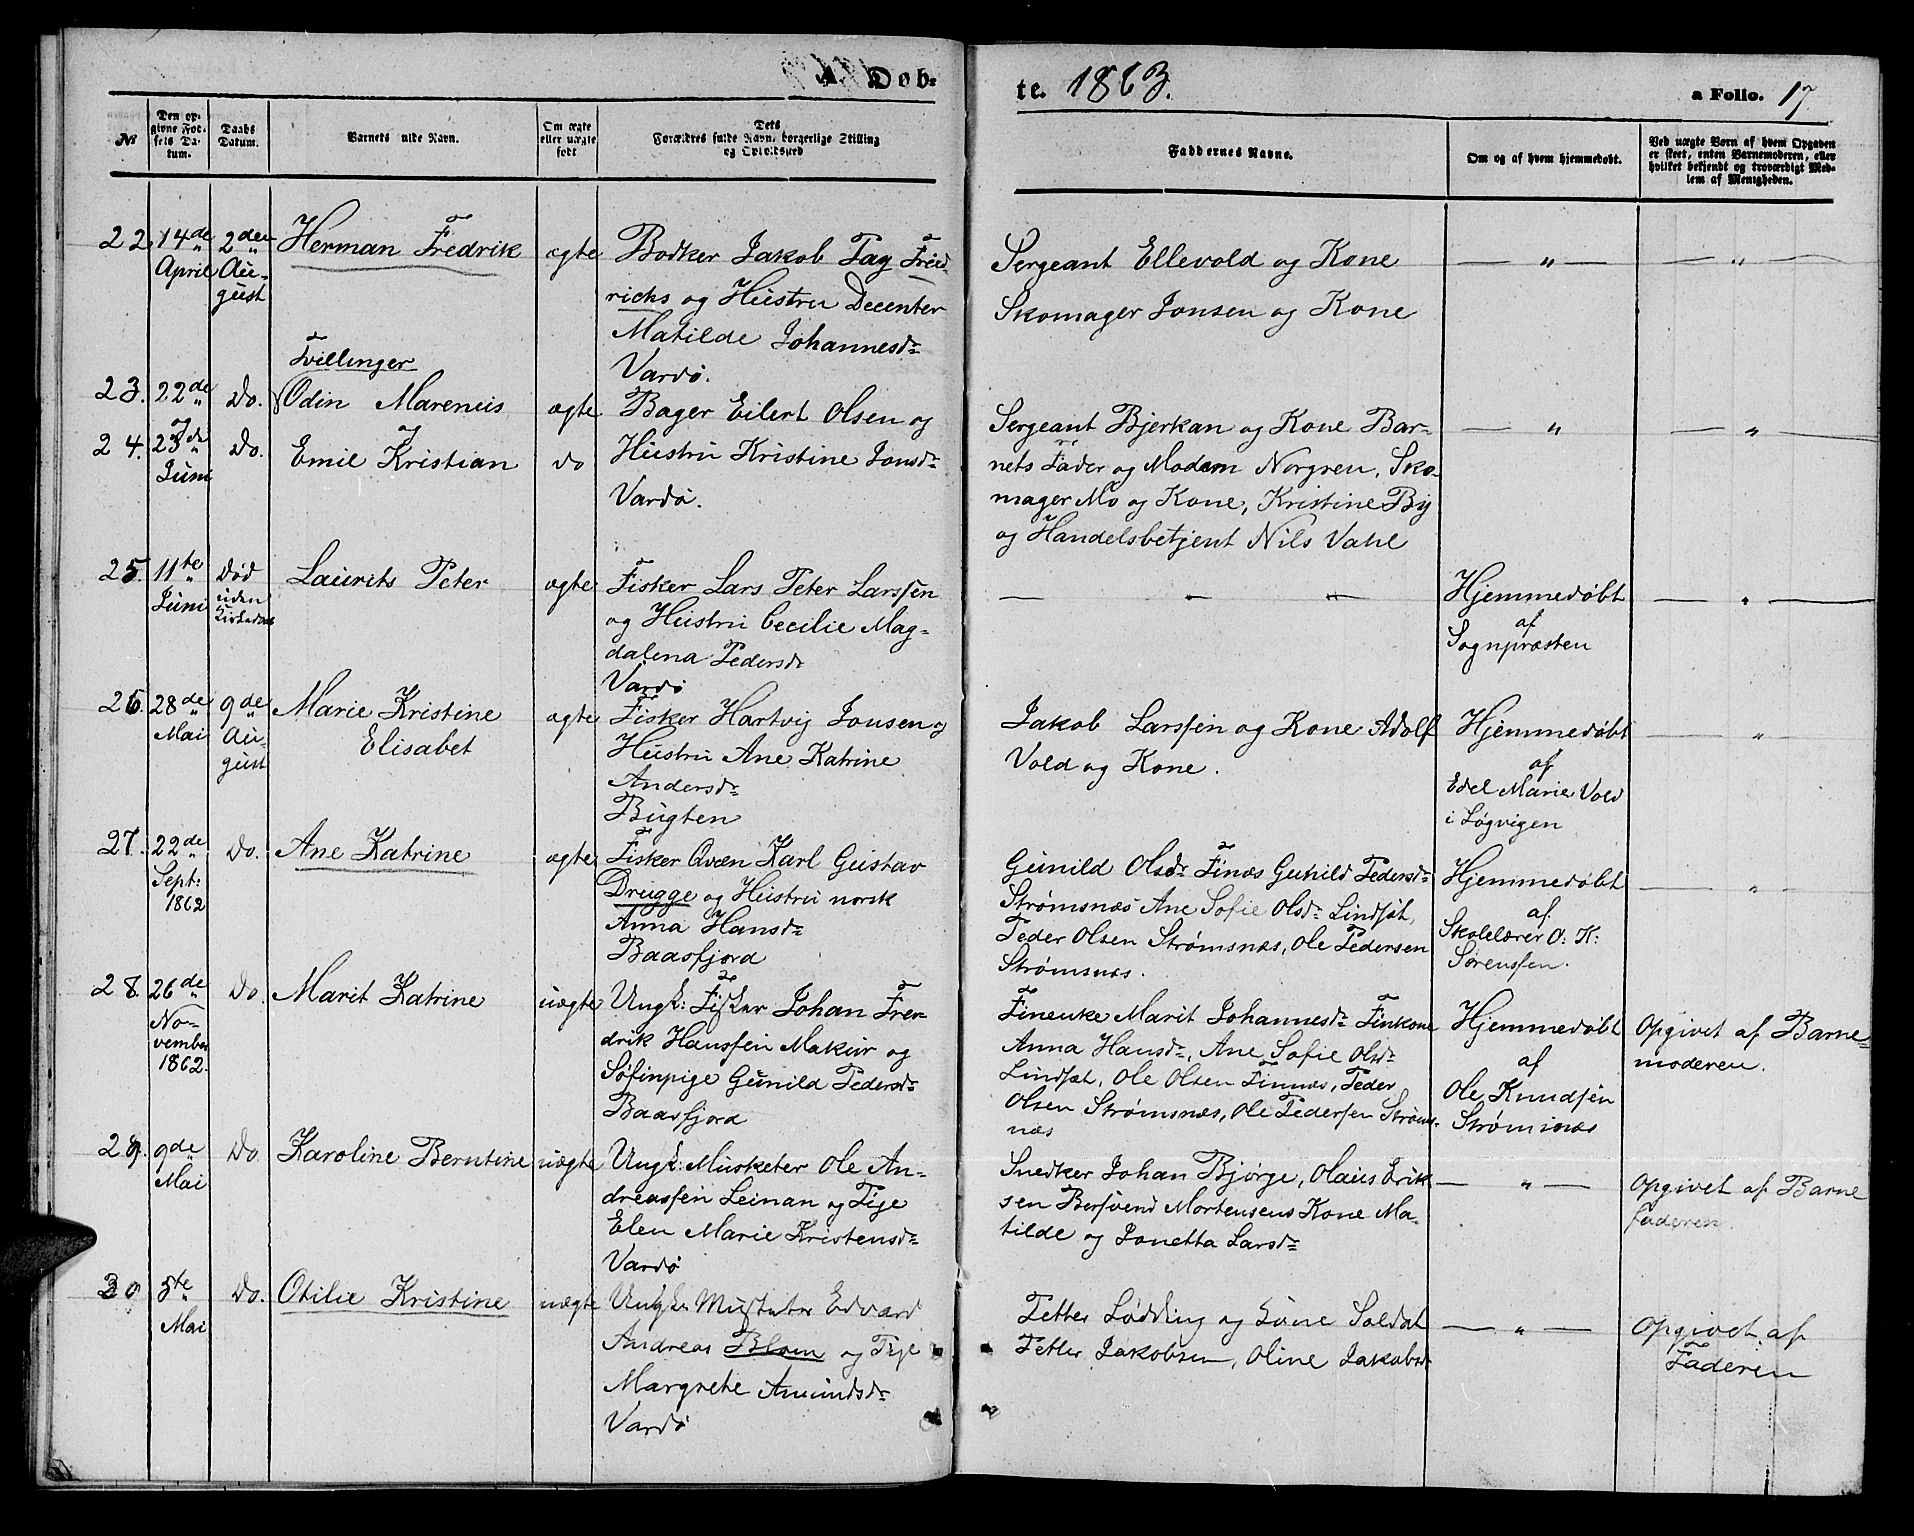 A. Døb-
te. 1863.
a Folio. 17
№
Den op-
givne Fød-
sels Da-
tum.
Daabs
Datum.
Barnets fulde Navn.
Om ægte
eller uægte
født
Dets
Forældres fulde Navn, borgerlige Stilling
og Opholdssted
Faddernes Navne.
Om og af hvem hjemmedøbt.
Ved uægte Børn af hvem Opgaven
er skeet, enten Barnemoderen, eller
hvilket bekjendt og troværdigt Med-
lem af Menigheden.
22. 14de
April
2den
Au-
gust
Herman Fredrik
ægte
Bødker Jakob Fag Fried-
richs og Hustru Decenter
Matilde Johannesdr
Vardø.
Sergeant Ellevold og Kone
Skomager Jonsen og Kone
— " —
— " —
Tvillinger
23. 22de
Do.
Odin Marenius
ægte
Bager Eilert Olsen og
og
24. 23de
Juni
Do.
Emil Kristian
do
Hustru Kristine Jonsdr
Vardø.
Sergeant Bjerkan og Kone Bar-
nets Fader og Madam Norgren, Sko-
mager Mo og Kone, Kristine By
og Handelsbetjent Nils Vahl
— " —
— " —
25. 11te
Juni
Død
uden
Kirkedaab
Laurits Peter
ægte
Fisker Lars Peter Larssen
og Hustru Cecilie Mag-
dalena Pedersdr
Vardø
— " " —
Hjemmedøbt
af
Sognpræsten
— " —
26. 28de
Mai
9de
Au-
gust
Marie Kristine
Elisabet
ægte
Fisker Hartvig Jonsen og
Hustru Ane Katrine
Andersdr
Bugten
Jakob Larssen og Kone Adolf
Vold og Kone.
Hjemmedøbt
af
Edel Marie Vold
i Løgvigen
— " —
27. 22de
Sept:
1862
Do.
Ane Katrine
ægte
Fisker Qvæn Karl Gustav
Drugge og Hustru norsk
Anna Hansdr
Baasfjord
Gunild Olsdr Finæs Gunild Pedersdr
Strømsnæs Ane Sofie Olsdr Lindsøt,
Peder Olsen Strømsnæs, Ole Pedersen
Strømsnæs.
Hjemmedøbt
af
Skolelærer O: K:
Sørenssen.
— " —
28. 26de
No-
vember
1862.
Do.
Marit Katrine
uægte
Ungk: Fisker Johan Fre-
drik Hanssen Makur og
Søfinpige Gunild Pedersdr
Baasfjord
Finenke Marit Johannesdr Finkone
Anna Hansdr, Ane Sofie Olsdr
Lindsøt, Ole Olsen Finnæs, Peder
Olsen Strømsnæs, Ole Pedersen Strøms-
næs
Hjemmedøbt
af
Ole Knudsen
Strømsnæs
Opgivet af Barne-
moderen.
29. 9de
Mai
Do
Karoline Berntine
uægte
Ungk: Musketer Ole An-
dreassen Leinan og Pige
Elen Marie Kristensdr
Vardø
Snedker Johan Bjørge, Olaus Erik-
sen Bersvend Mortensens Kone Ma-
tilde og Jonetta Larsdr
— " —
Opgivet af Barne
faderen.
30 5te
Mai
Do.
Otilie Kristine
uægte
Ungk: Musketer Edvard
Andreas Bloen og Pige
Margrete Amundsdr
Vardø
Petter Lødding og Kone Soldat
Petter Jakobsen, Oline Jakobsdr
— " —
Opgivet af
Faderen